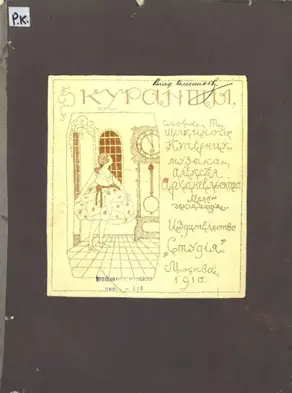 Р.К.
КУРАНТЫ.
Слова Т.Щ.
Щепкиной
Куперник
музыка
Алексѣя
Архангельскаго
Мело-
декламація
Издательство
"Студія"
Москва,
1910.